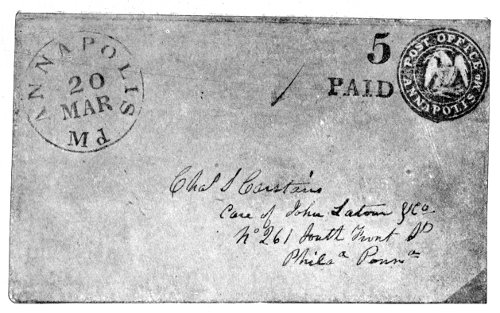 ANNAPOLIS
20
MAR
Md
5
PAID
POST OFFICE
ANNAPOLIS Md.
Chas S Carstairs
Care of John Latour & Co.
No 261 South Front St
Phila Penna